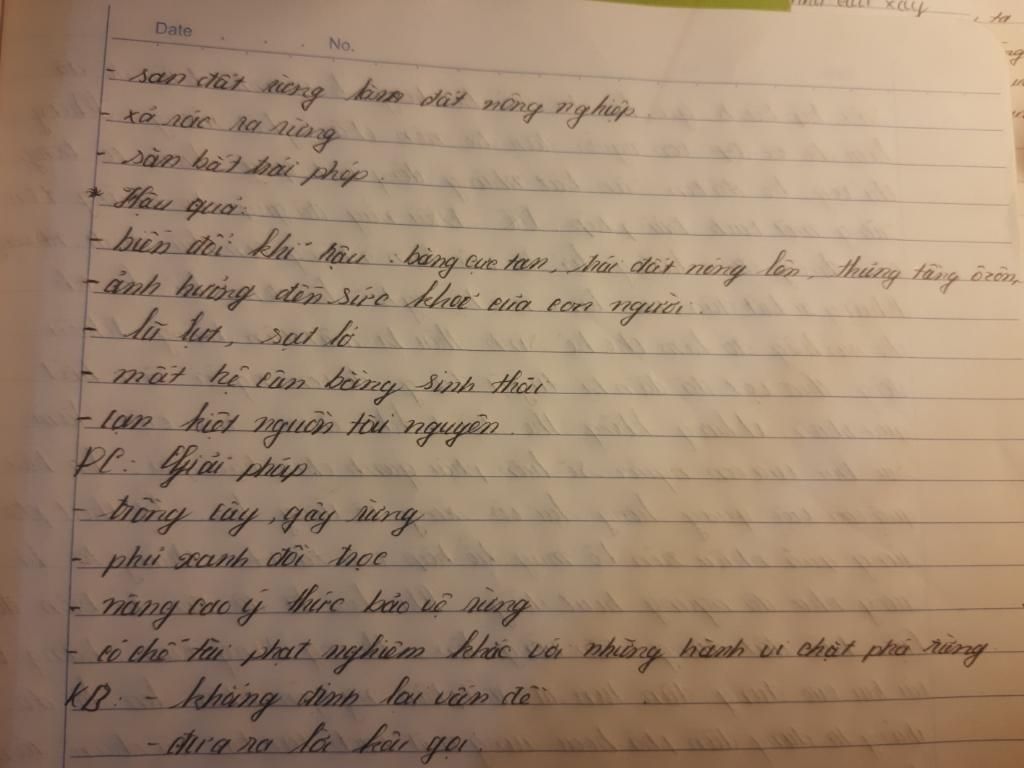 như cầu xây
, ta
Date . . . . No.
- san đất rừng làm đất nông nghiệp.
- xả rác ra rừng
- săn bắt trái phép.
* Hậu quả:
- biến đổi khí hậu : băng cực tan, trái đất nóng lên, thủng tầng ôzôn,
- ảnh hưởng đến sức khoẻ của con người.
- lũ lụt, sạt lở
- mất hệ cân bằng sinh thái
- cạn kiệt nguồn tài nguyên.
PC: Giải pháp
- trồng cây, gây rừng
- phủ xanh đồi trọc
- nâng cao ý thức bảo vệ rừng
- có chế tài phạt nghiêm khắc với những hành vi chặt phá rừng
KB: - khẳng định lại vấn đề
- đưa ra lời kêu gọi.